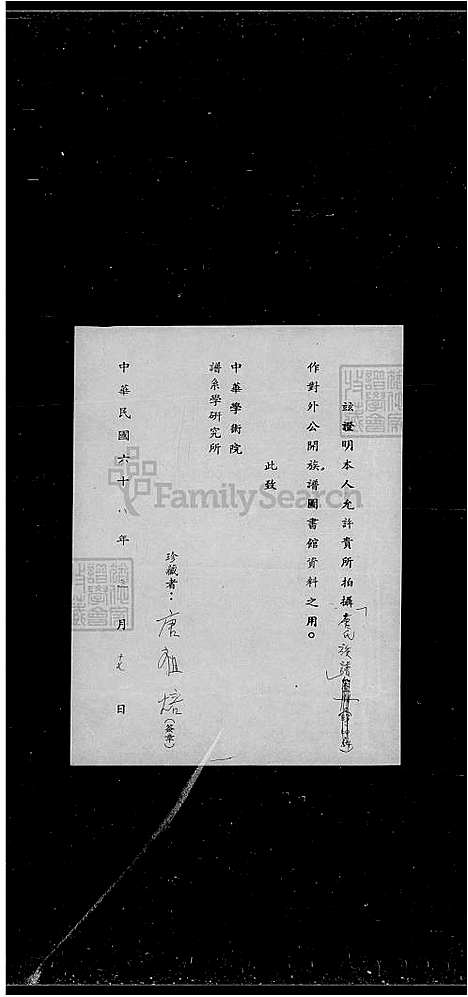 茲證明本人允許貴所拍攝唐氏族譜
作對外公開族譜圖書館資料之用。
此致
中華學術院
譜系學研究所
珍藏者：唐祖焙(簽章)
中華民國六十八年 月十七日
FamilySearch